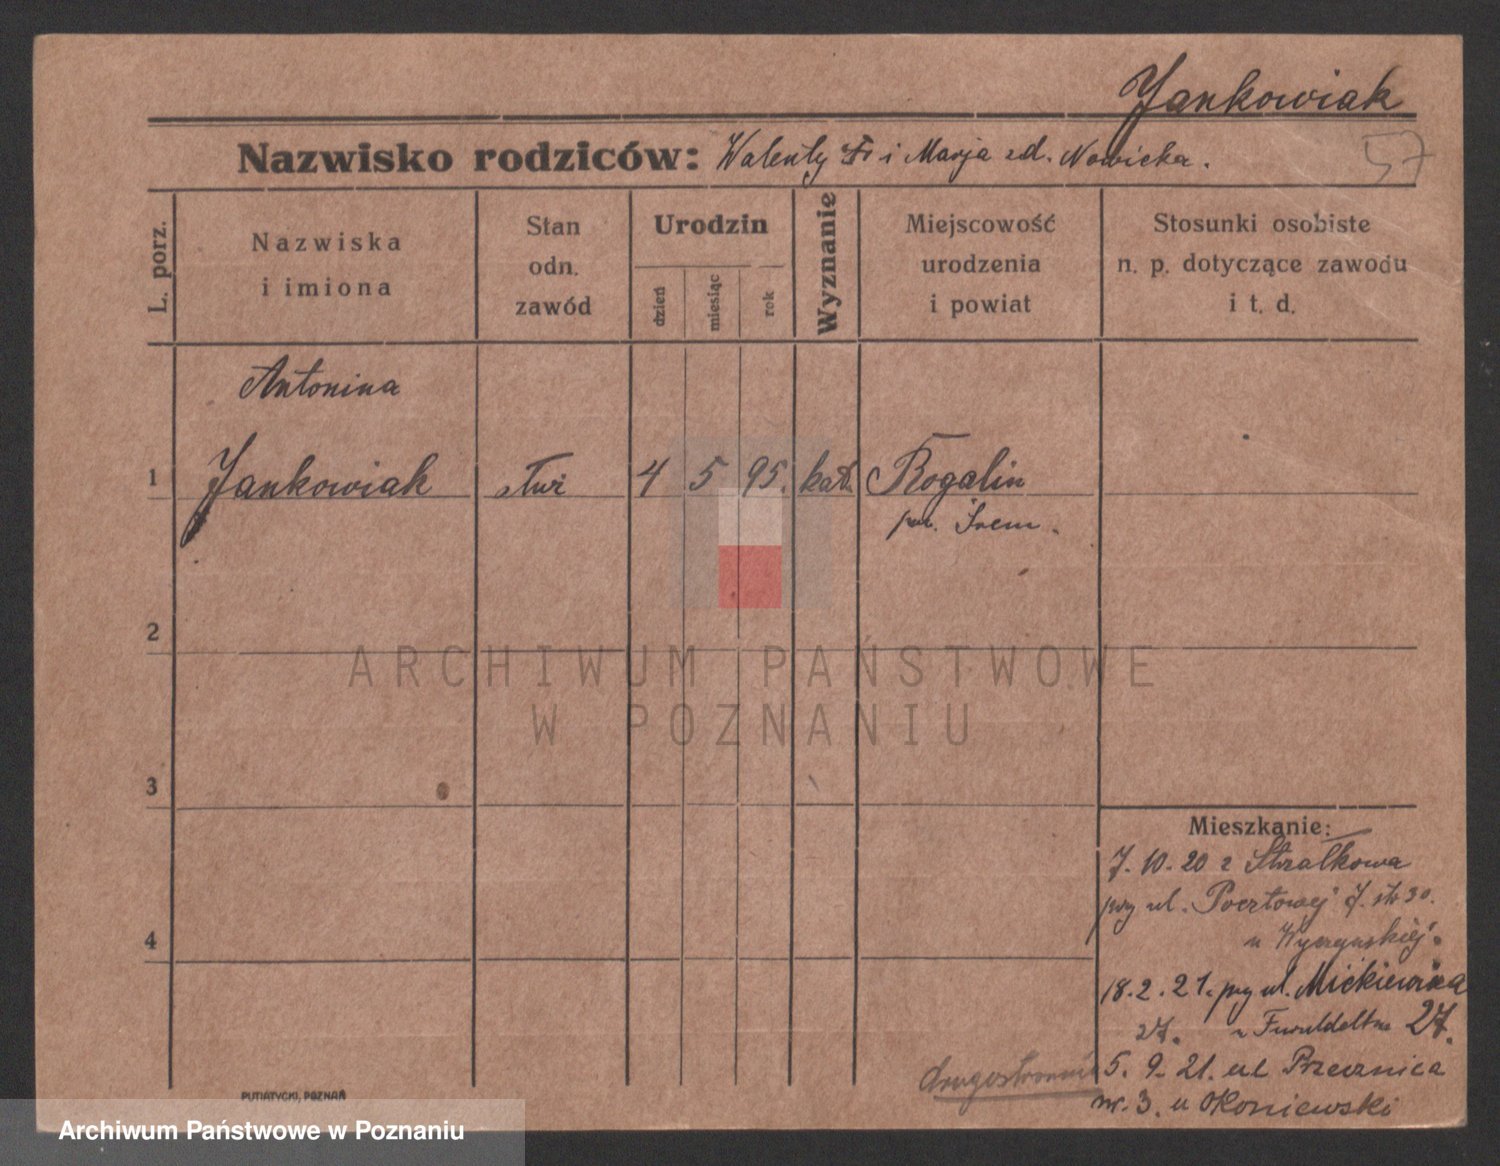 Jankowiak
Nazwisko rodziców: Walenty i Marja zd. Nowicka.
57
L. porz.
Nazwiska
i imiona
Stan
odn.
zawód
Urodzin
dzień
miesiąc
rok
Wyznanie
Miejscowość
urodzenia
i powiat
Stosunki osobiste
n. p. dotyczące zawodu
i t. d.
Antonina
1 Jankowiak służ 4 5 95. kat. Rogalin
pow. Śrem.
2
ARCHIWUM PAŃSTWOWE
W POZNANIU
3
Mieszkanie:
7. 10. 20 z Strzałkowa
przy ul. Pocztowej 30.
u
4
18. 2. 21. przy ul. Mickiewicza
27. u 27.
5. 9. 21. ul Przecznica
nr. 3. u Okoniewski
drugostronnie
PUTIATYCKI, POZNAŃ
Archiwum Państwowe w Poznaniu